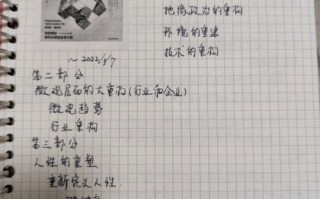 地缘政治的重构
环境的重建
技术的重构
~ 2022/1/7
第二部分
微观层面的大重构(行业和企业)
微观趋势
行业重构
第三部分
人性的重塑
重新定义人性